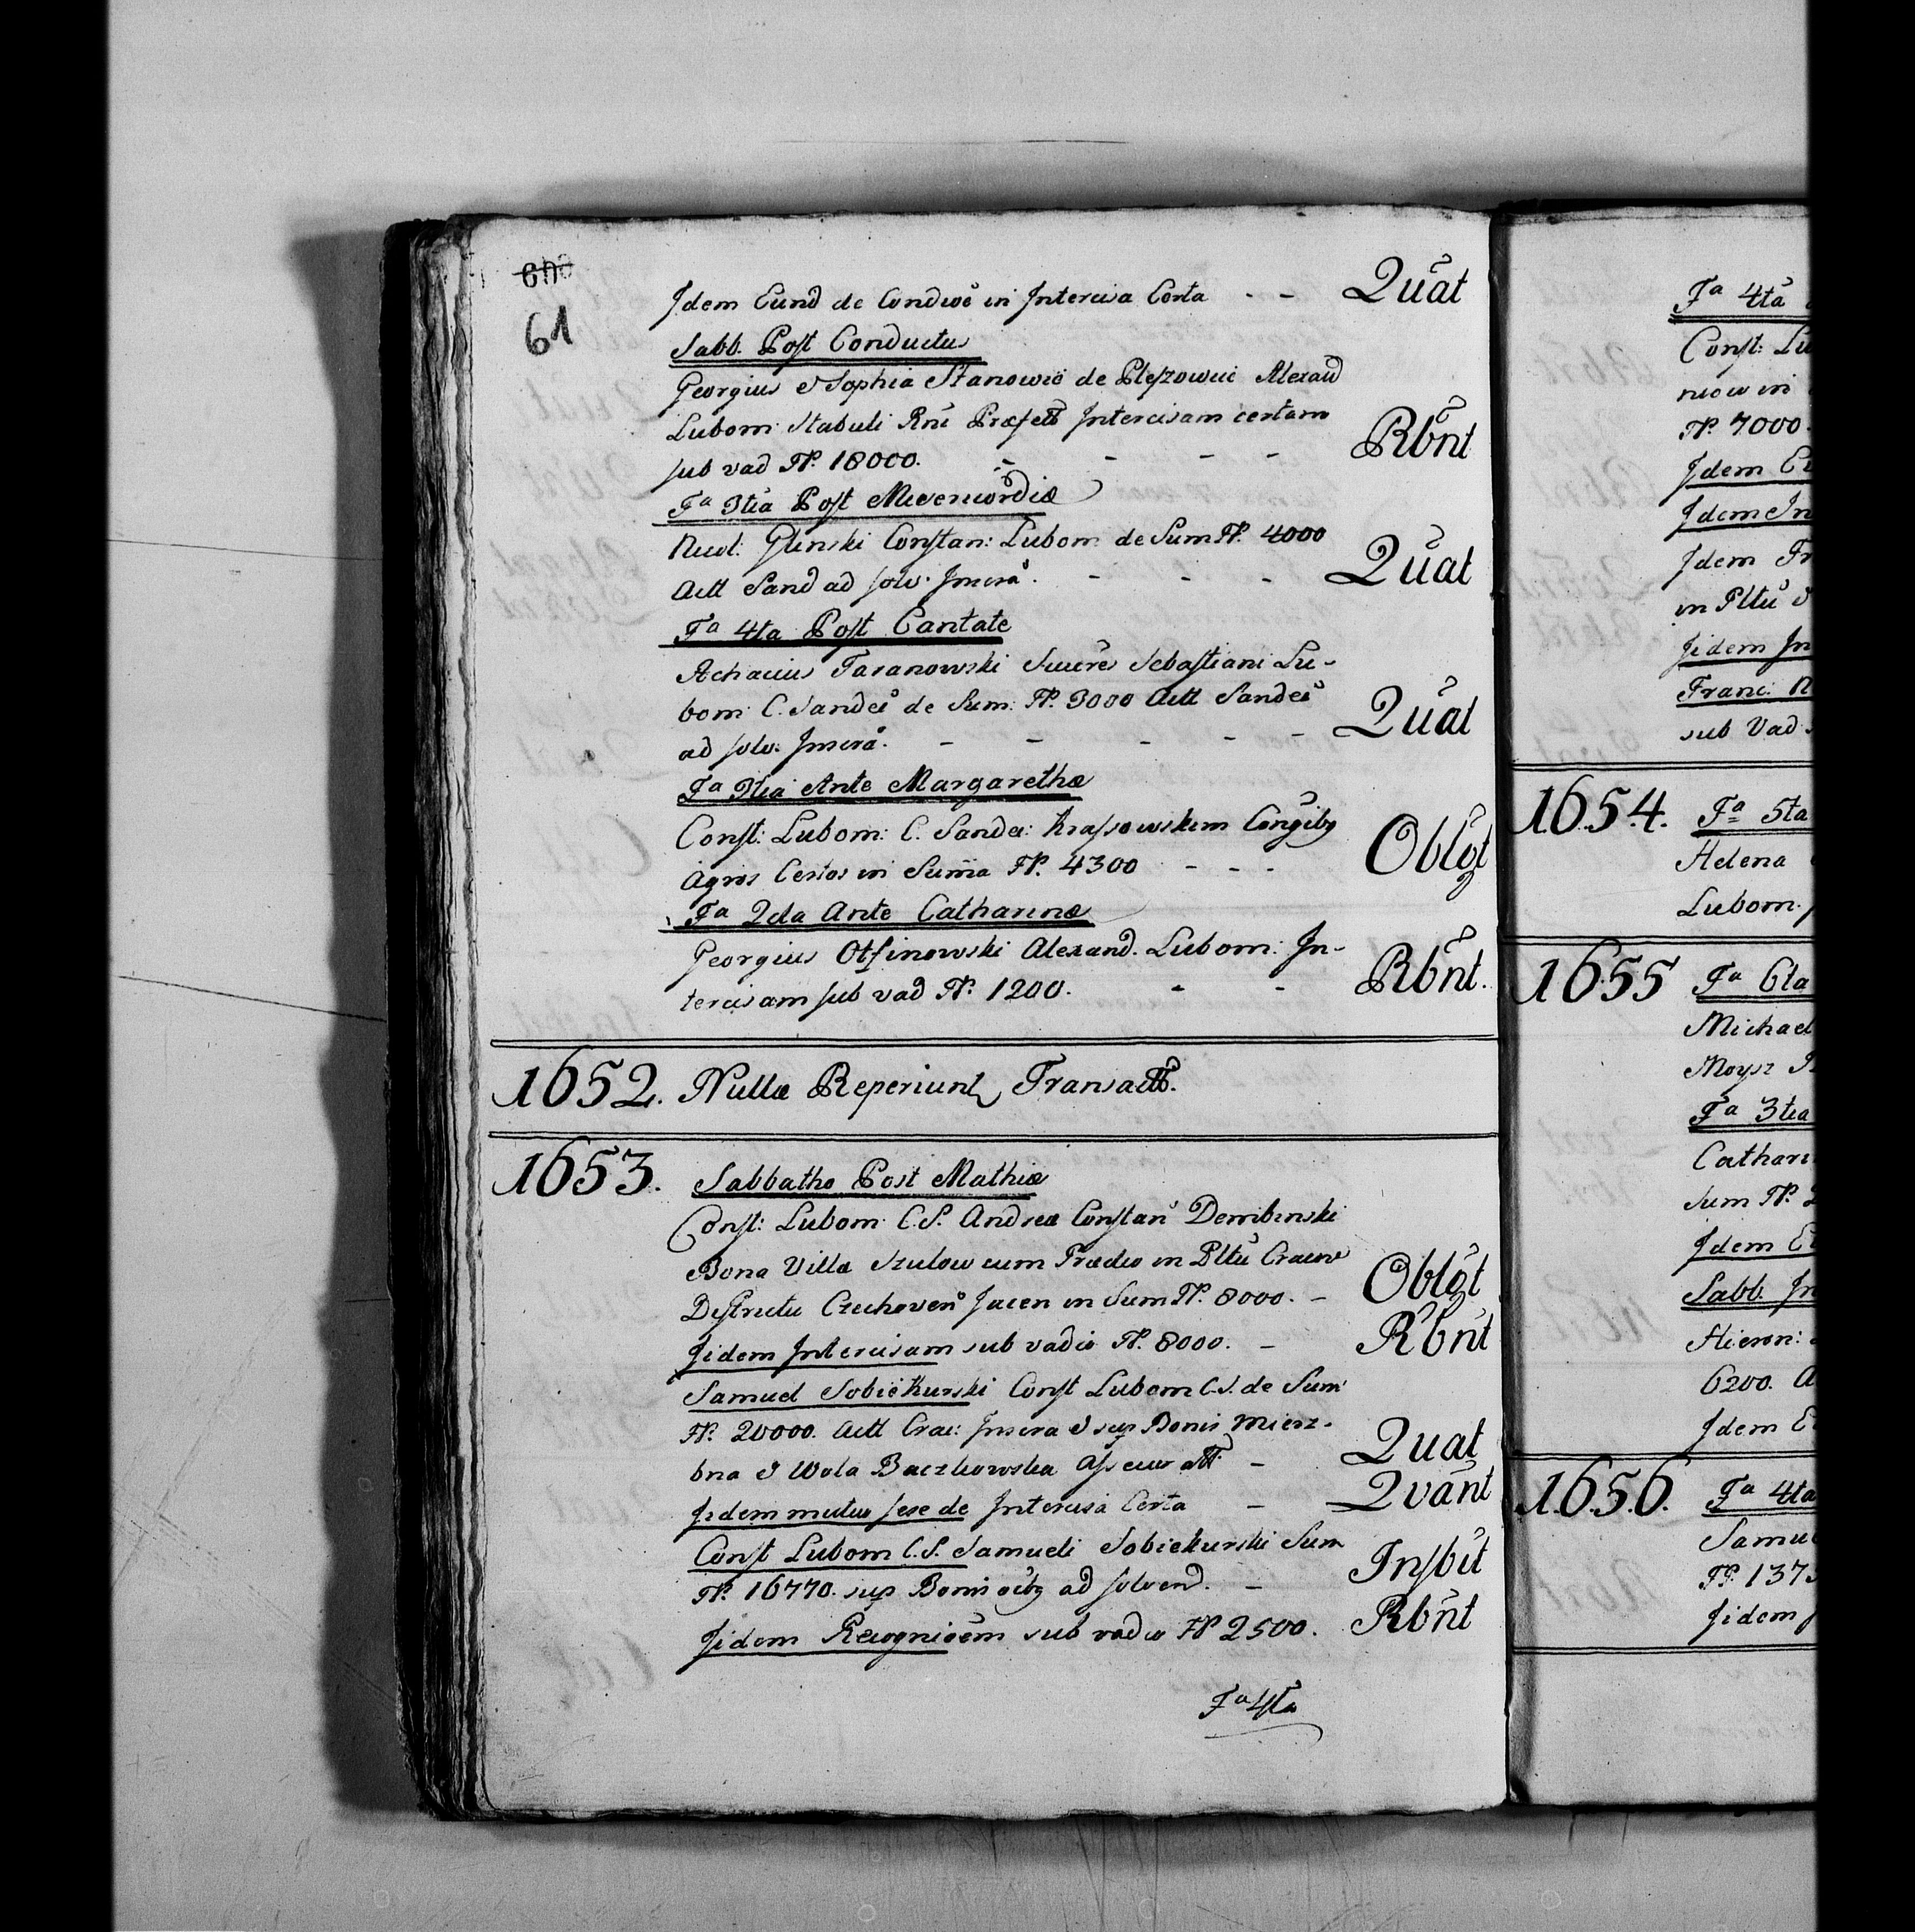 61
Idem Eund de Condicē in Intercisa Certa - - Quāt
Sabb. Post Conductus
Georgius & Sophia Stanowie de Pleszowie Alexand
Lubom: Stabuli Rni Præfett Intercisam certam
sub vad FP. 18000. - - - - Rbñt
Fª 3tia Post Misericordiæ
Nicol: Glinski Constan: Lubom: de Sum FP. 4000
Actt Sand ad solv. Inscrā. - - - Quāt
Fª 4ta Post Cantate
Achacius Taranowski Succrēs Sebastiani Lu-
bom: C. Sandeč de Sum: FP. 3000 Actt Sandeč
ad solv. Inscrā. - - - - - Quāt
Fª 3tia Ante Margarethæ
Const: Lubom: C. Sande: Krassowskim Conğibg
Agros Certos in Sum̄a FP. 4300 - - - Oblğt
Fª 2da Ante Catharinæ
Georgius Otfinowski Alexand. Lubom: In-
tercisam sub vad FP. 1200. - - Rbñt.
1652. Nullæ Reperiunt Transactt.
1653. Sabbatho Post Mathiæ
Const: Lubom: C.S. Andreæ Constan Dembinski
Bona Villæ Szulow cum Prædio in Pltū Cracov
Districtu Czchoven Jacen in Sum FP. 8000. - Oblğt
Iidem Intercisam sub vadio FP. 8000. - Rbñt
Samuel Sobiekurski Const Lubom C.S. de Sum
FP. 20000. Actt Crac: Inscra & sup Bonis Miesz-
bna & Wola Baczkowska Assecuratt. - Quat
Iidem mutuo sese de Intercisa Certa - Qvānt
Const Lubom C.S. Samueli Sobiekurski Sum
FP. 16770. sup Bonis oıbg ad solvend. - Insbit
Iidem Recognicēm sub vadio FP 2500. Rbñt
Fª 4ta
Fª 4tā
Const: Lu
niow in
FP. 7000.
Idem E
Idem In
Idem Fr
in Pltū &
Iidem In
Franc: N
sub Vad
1654. Fª 5ta
Helena
Lubom:
1655 Fª 6ta
Michael
Moysz
Fª 3tia
Cathari
Sum FP.
Idem E
Sabb. In
Hieron:
6200. A
Idem E
1656. Fª 4ta
Samu
FP. 137
Iidem